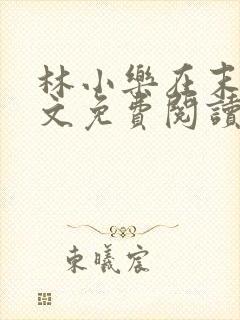 林小樂在末
文免費閱讀
東曦宸